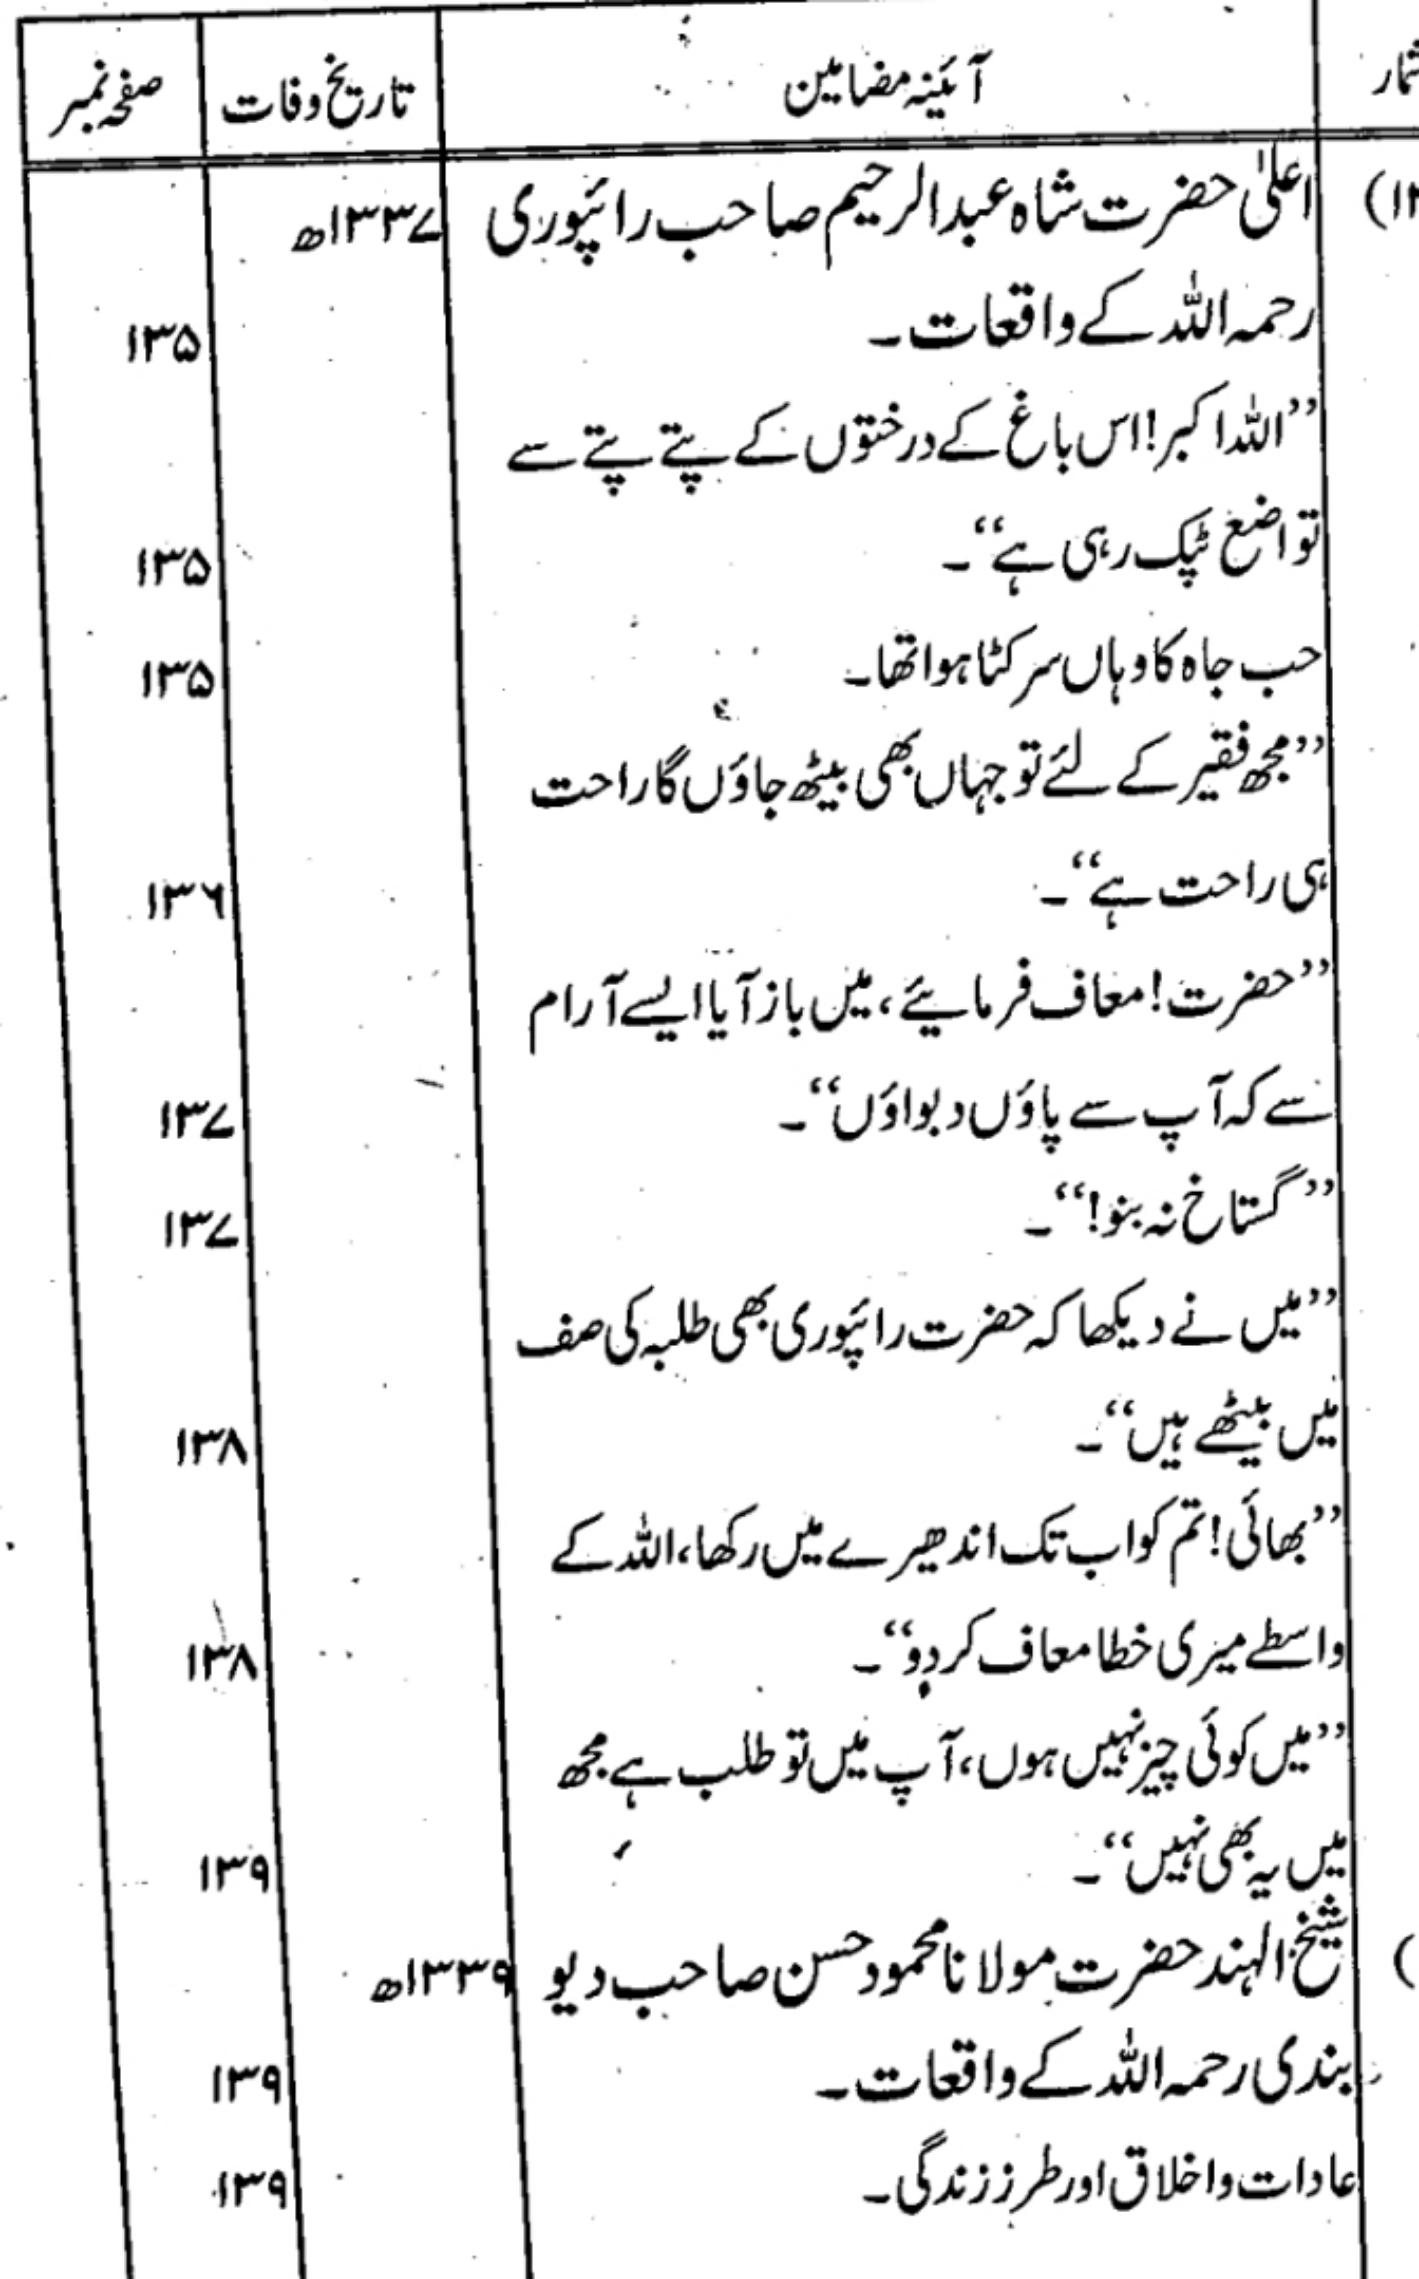 شمار آئینہ مضامین تاریخ وفات صفحہ نمبر
اعلیٰ حضرت شاہ عبدالرحیم صاحب رائپوری ۱۳۳۷ھ
رحمہ اللہ کے واقعات۔ ۱۳۵
’’اللہ اکبر! اس باغ کے درختوں کے پتے پتے سے
تواضع ٹپک رہی ہے‘‘۔ ۱۳۵
حب جاہ کا وہاں سر کٹا ہوا تھا۔ ۱۳۵
’’مجھ فقیر کے لئے تو جہاں بھی بیٹھ جاؤں گا راحت
ہی راحت ہے‘‘۔ ۱۳۶
’’حضرت! معاف فرمایئے، میں باز آیا ایسے آرام
سے کہ آپ سے پاؤں دبواؤں‘‘۔ ۱۳۷
’’گستاخ نہ بنو!‘‘۔ ۱۳۷
’’میں نے دیکھا کہ حضرت رائپوری بھی طلبہ کی صف
میں بیٹھے ہیں‘‘۔ ۱۳۸
’’بھائی! تم کو اب تک اندھیرے میں رکھا، اللہ کے
واسطے میری خطا معاف کردو‘‘۔ ۱۳۸
’’میں کوئی چیز نہیں ہوں، آپ میں تو طلب ہے مجھ
میں یہ بھی نہیں‘‘۔ ۱۳۹
شیخ الہند حضرت مولانا محمود حسن صاحب دیو ۱۳۳۹ھ
بندی رحمہ اللہ کے واقعات۔ ۱۳۹
عادات و اخلاق اور طرز زندگی۔ ۱۳۹